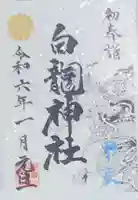 初奉詣
白龍神社
令和六年一月元旦